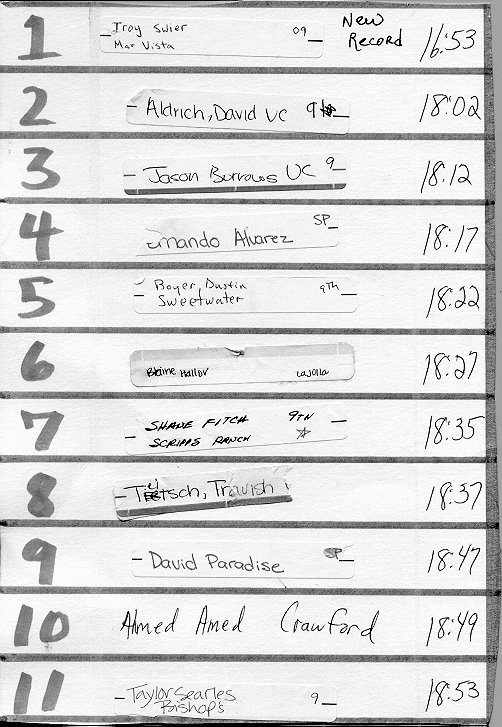 1 Troy Swier 09 New Record 16:53
Mar Vista
2 Aldrich, David UC 9 18:02
3 Jason Burrows UC 9 18:12
4 Alvarez SP 18:17
5 Boyer, Dustin 9th 18:22
Sweetwater
6 Blaine LaJolla 18:27
7 SHANE FITCH 9TH 18:35
SCRIPPS RANCH
8 Travish 18:37
9 David Paradise SP 18:47
10 Ahmed Amed Crawford 18:49
11 Taylor Searles 9 18:53
Bishop's